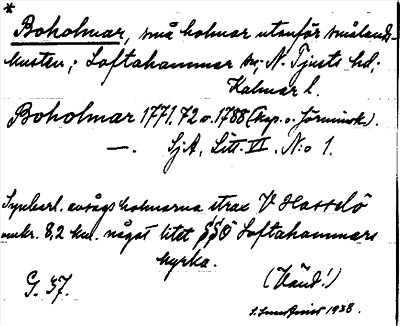 *
Boholmar, små holmar utanför smålands-
kusten; Loftahammar sn, N. Tjusts hd;
Kalmar l.
Boholmar 1771. 72 o. 1788 (Kop. o.
—. SjA, Litt. VI, N:o 1.
Synbarl. avsågs holmarna strax V Hasselö
omkr. 8,2 km. något litet SSÖ Loftahammars
kyrka.
G. 37. (Vänd!)
1938.